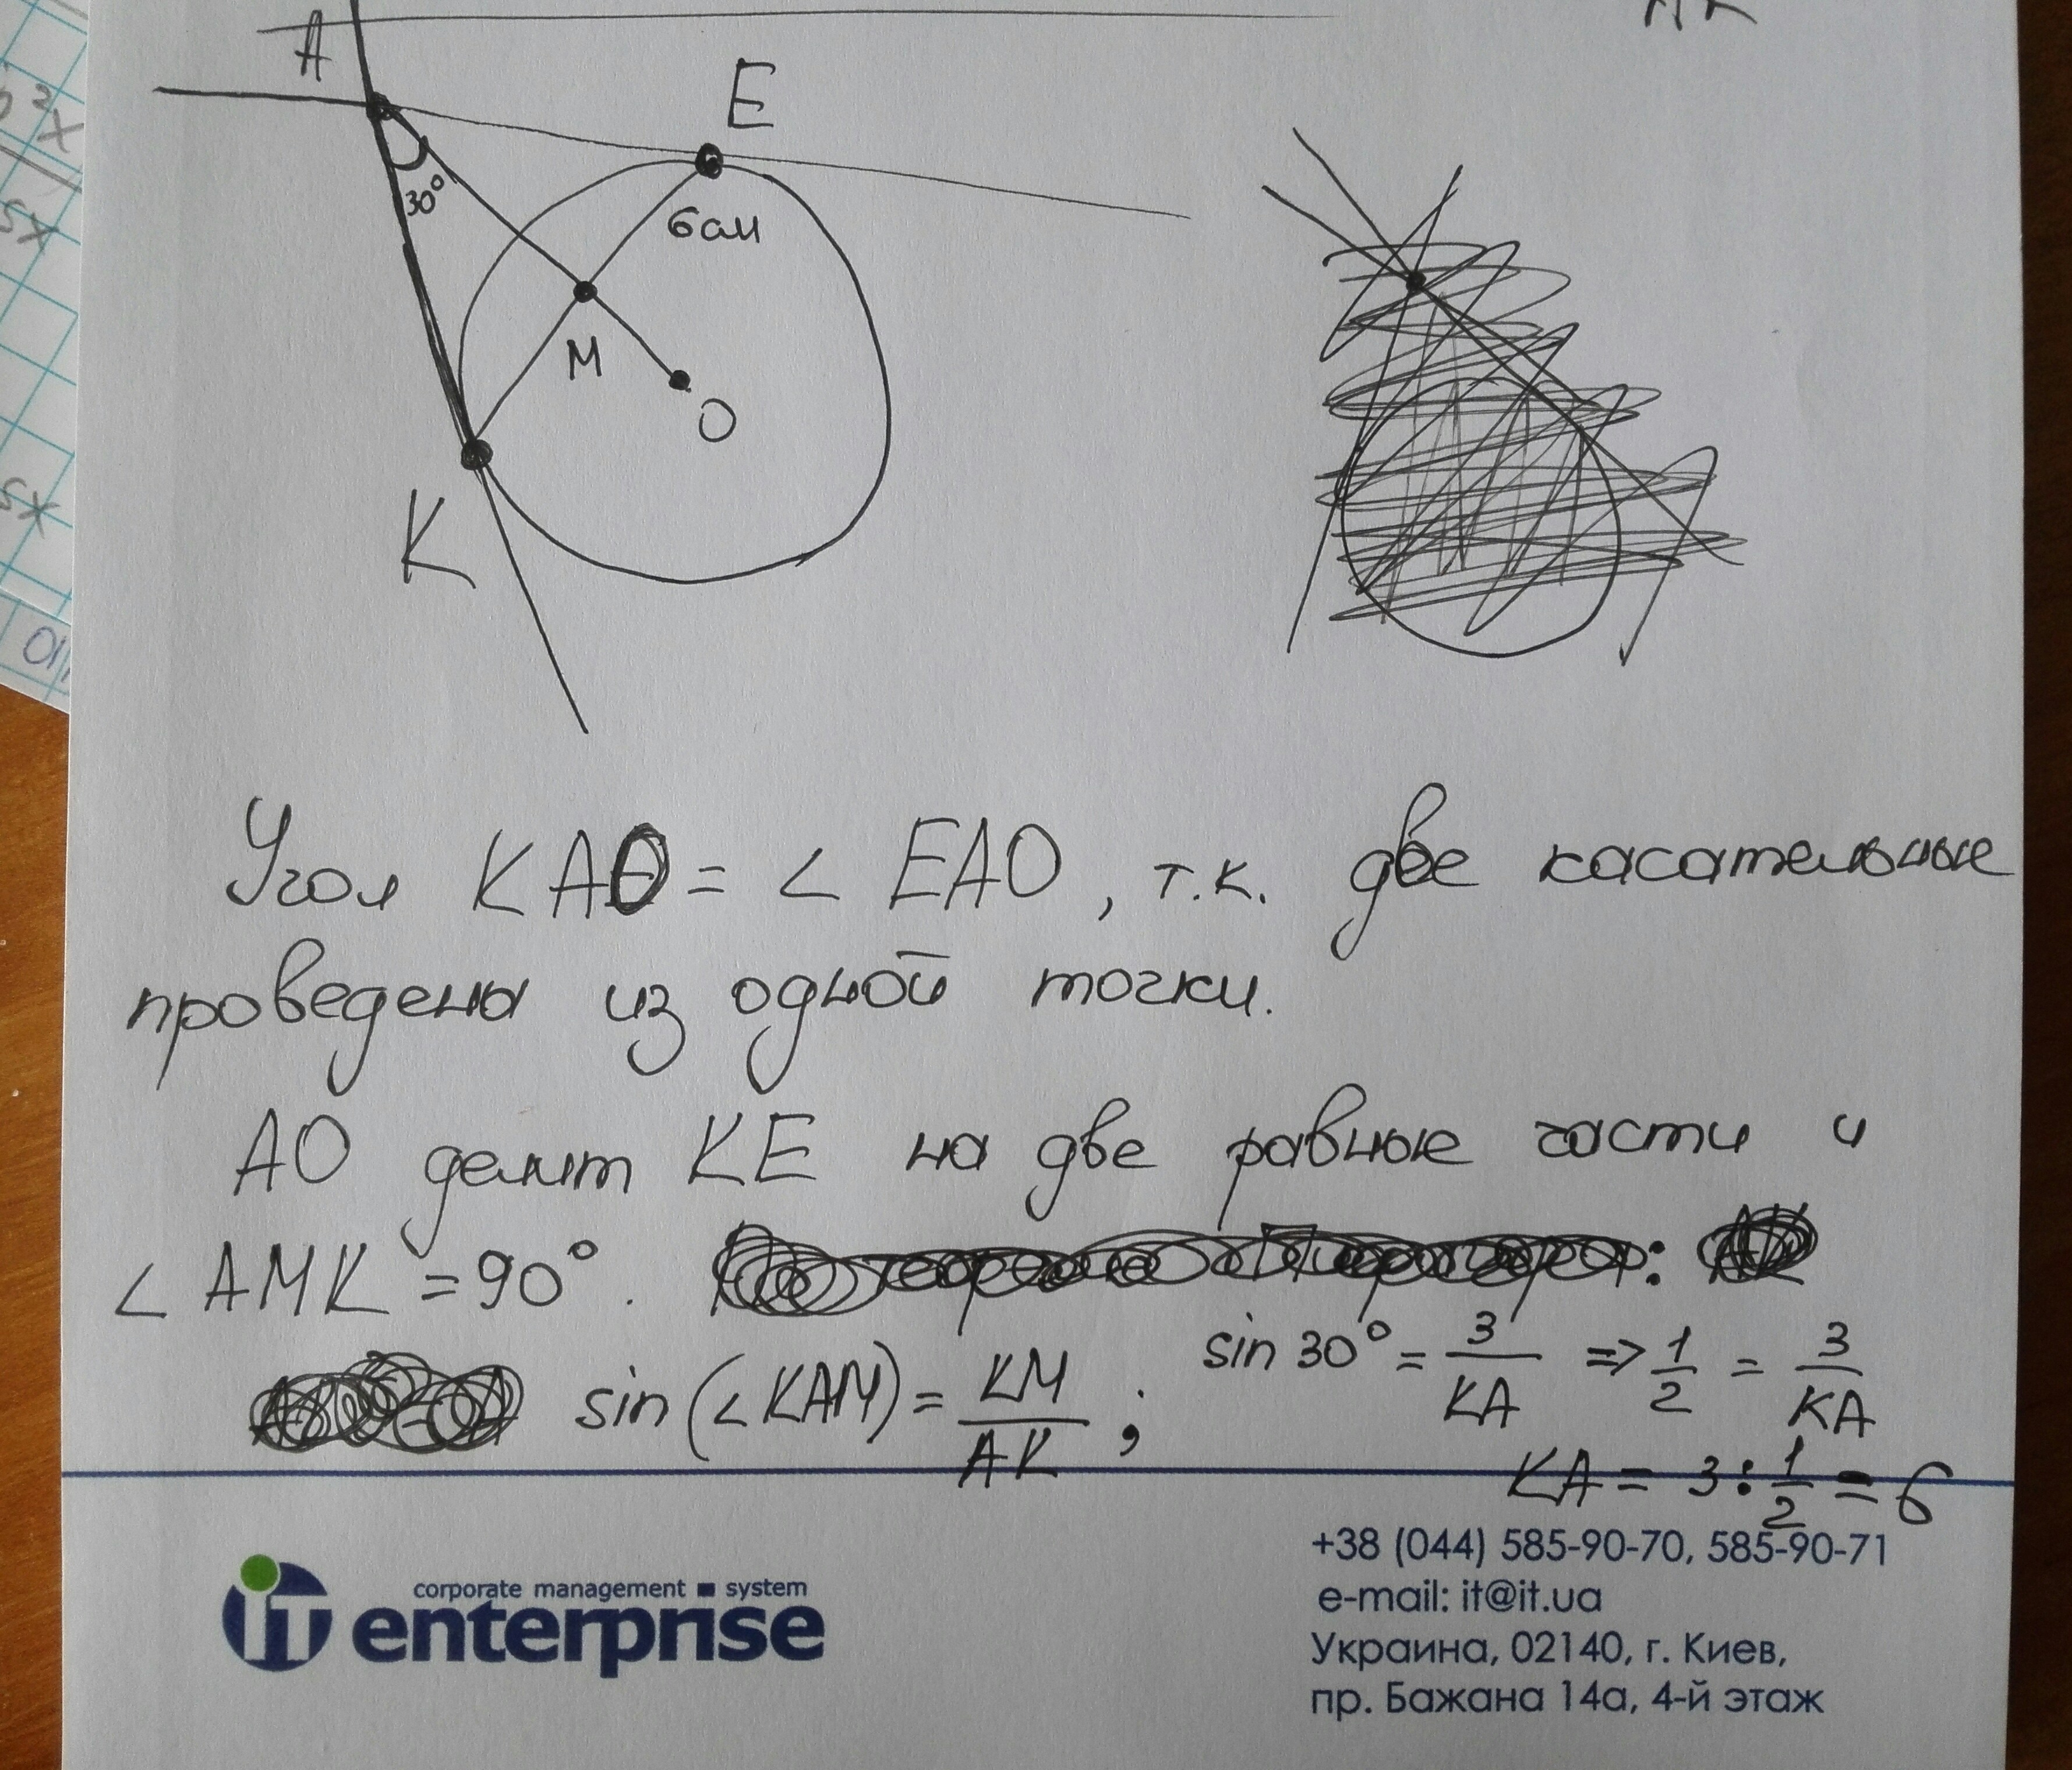 A
E
30°
6 см
M
O
K
Угол KAO = ∠ EAO, т.к. две касательные
проведены из одной точки.
AO делит KE на две равные части и
∠ AMK = 90°.
sin (∠ KAM) = KM/AK ; sin 30° = 3/KA => 1/2 = 3/KA
KA = 3 : 1/2 = 6
iT enterprise
corporate management system
+38 (044) 585-90-70, 585-90-71
e-mail: it@it.ua
Украина, 02140, г. Киев,
пр. Бажана 14а, 4-й этаж
2x
5x
5x